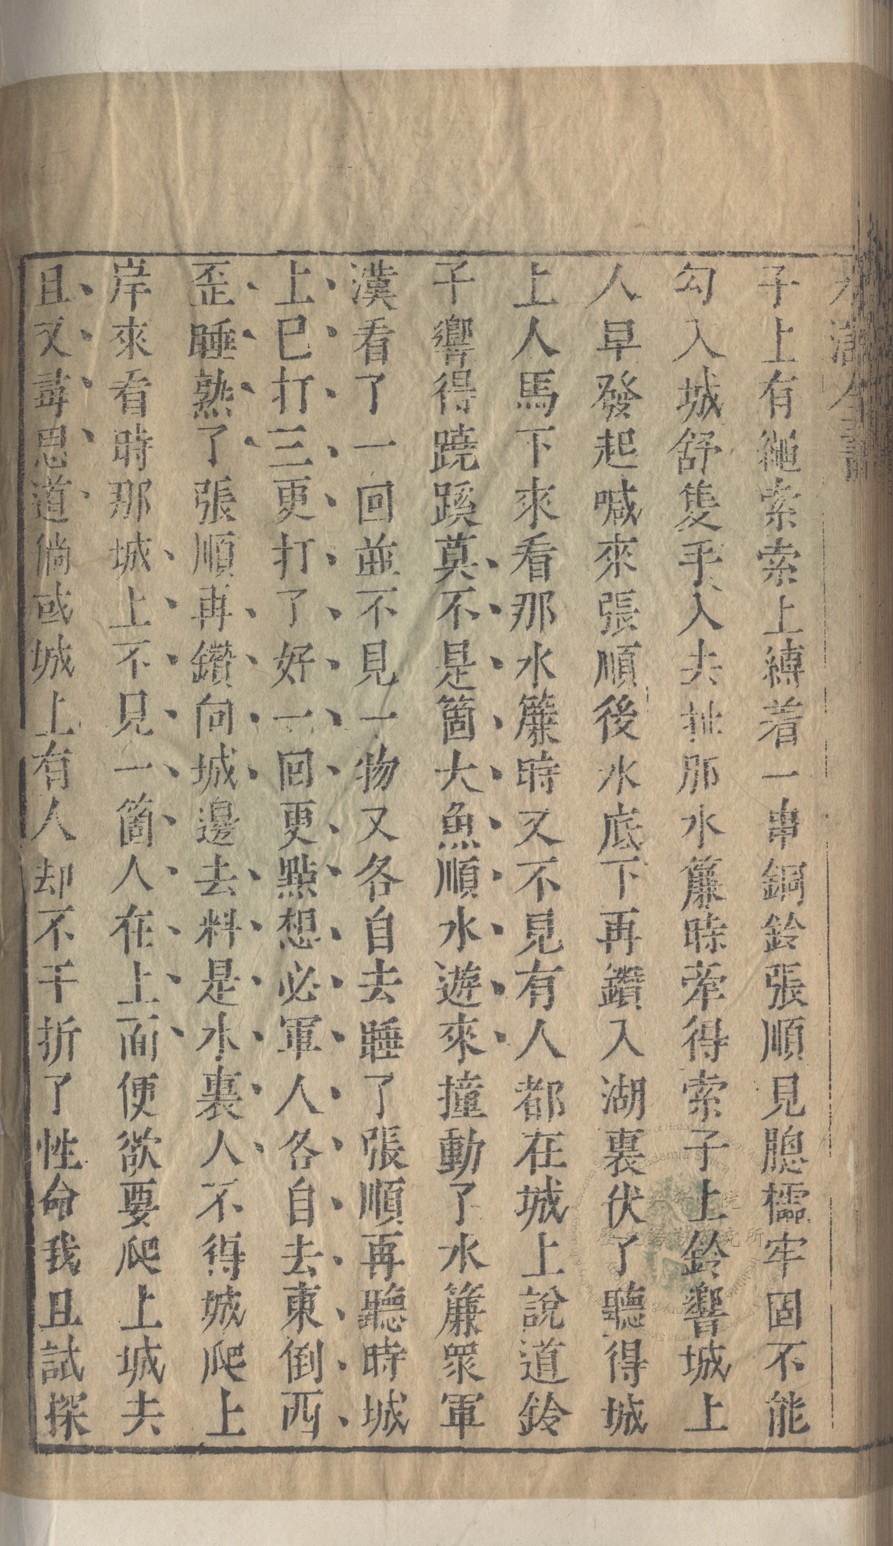 水滸全書
子上有繩索索上縛着一串銅鈴張順見牕櫺牢固不能
勾入城舒隻手入去扯那水簾時牽得索子上鈴響城上
人早發起喊來張順後水底下再鑽入湖裏伏了聽得城
上人馬下來看那水簾時又不見有人都在城上說道鈴
子響得蹺蹊莫不是箇大魚順水遊來撞動了水簾眾軍
漢看了一回並不見一物又各自去睡了張順再聽時城
上已打三更打了好一回更點想必軍人各自去東倒西
歪睡熟了張順再鑽向城邊去料是水裏人不得城爬上
岸來看時那城上不見一箇人在上面便欲要爬上城去
且又尋思道倘或城上有人却不干折了性命我且試探